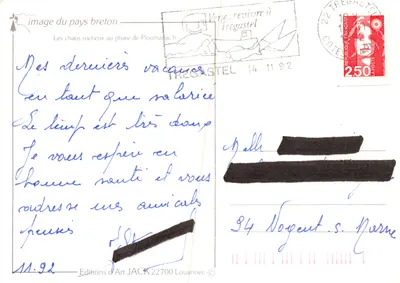 image du pays breton
Les chaos rocheux au phare de Ploumanac'h
Mes dernières vacances
en tant que salariée
Le temps est très doux
Je vous espère en
bonne santé et vous
adresse mes amicales
pensées
11.92
Editions d'Art JACK 22700 Louannec ©
Vous rencontre à
Trégastel
TREGASTEL 14 11 92
22 TREGASTEL
2,50
Melle
94 Nogent s. Marne